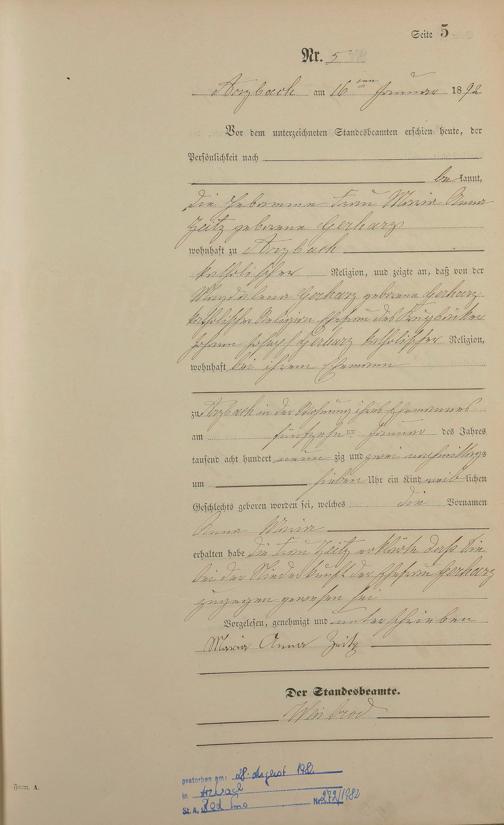 Seite 5
Nr. 5
Arzbach am 16 ten Januar 1892
Vor dem unterzeichneten Standesbeamten erschien heute, der
Persönlichkeit nach
be kannt,
die Hebamme Frau Maria Anna
Zeitz geborene Gerharz
wohnhaft zu Arzbach
katholischer Religion, und zeigte an, daß von der
Magdalena Gerharz geborene Gerharz
katholischer Religion Ehefrau des
Johann Joseph Gerharz katholischer Religion,
wohnhaft bei ihrem Ehemann
zu Arzbach in der Wohnung ihres Ehemannes
am fünfzehn ten Januar des Jahres
tausend acht hundert neun zig und zwei vormittags
um sieben Uhr ein Kind weib lichen
Geschlechts geboren worden sei, welches die Vornamen
Anna Maria
erhalten habe die Frau Zeitz erklärte daß sie
bei der Niederkunft der Ehefrau Gerharz
zugegen gewesen sei
Vorgelesen, genehmigt und unterschrieben
Maria Anna Zeitz
Der Standesbeamte.
Form. A.
gestorben am: 28. August 1982
in Arzbach
St. A. Bad Ems Nr. 272/1982